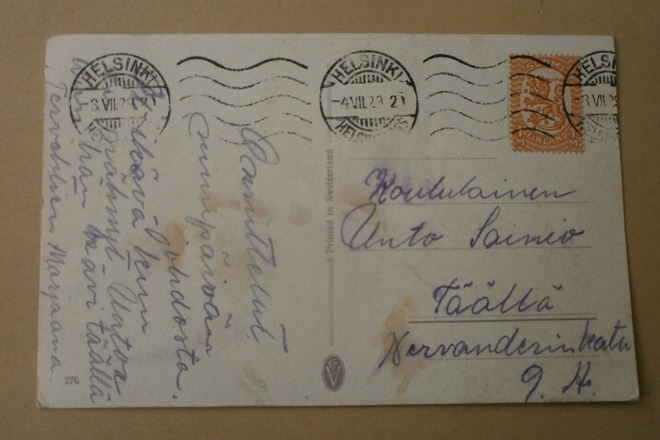 HELSINKI
3.VII.29
HELSINGFORS
HELSINKI
4.VII.29 21
HELSINGFORS
HELSINKI
3.VII.29
SUOMI
FINLAND
M M
Onnittelut
nimipäivän
johdosta.
Ikävä kun
nähnyt Untoa
kun hän kävi täällä
Tervehtien Marjaana.
Printed in Switzerland
276
Koululainen
Unto Sainio
Täällä
Nervanderinkatu
9. A.